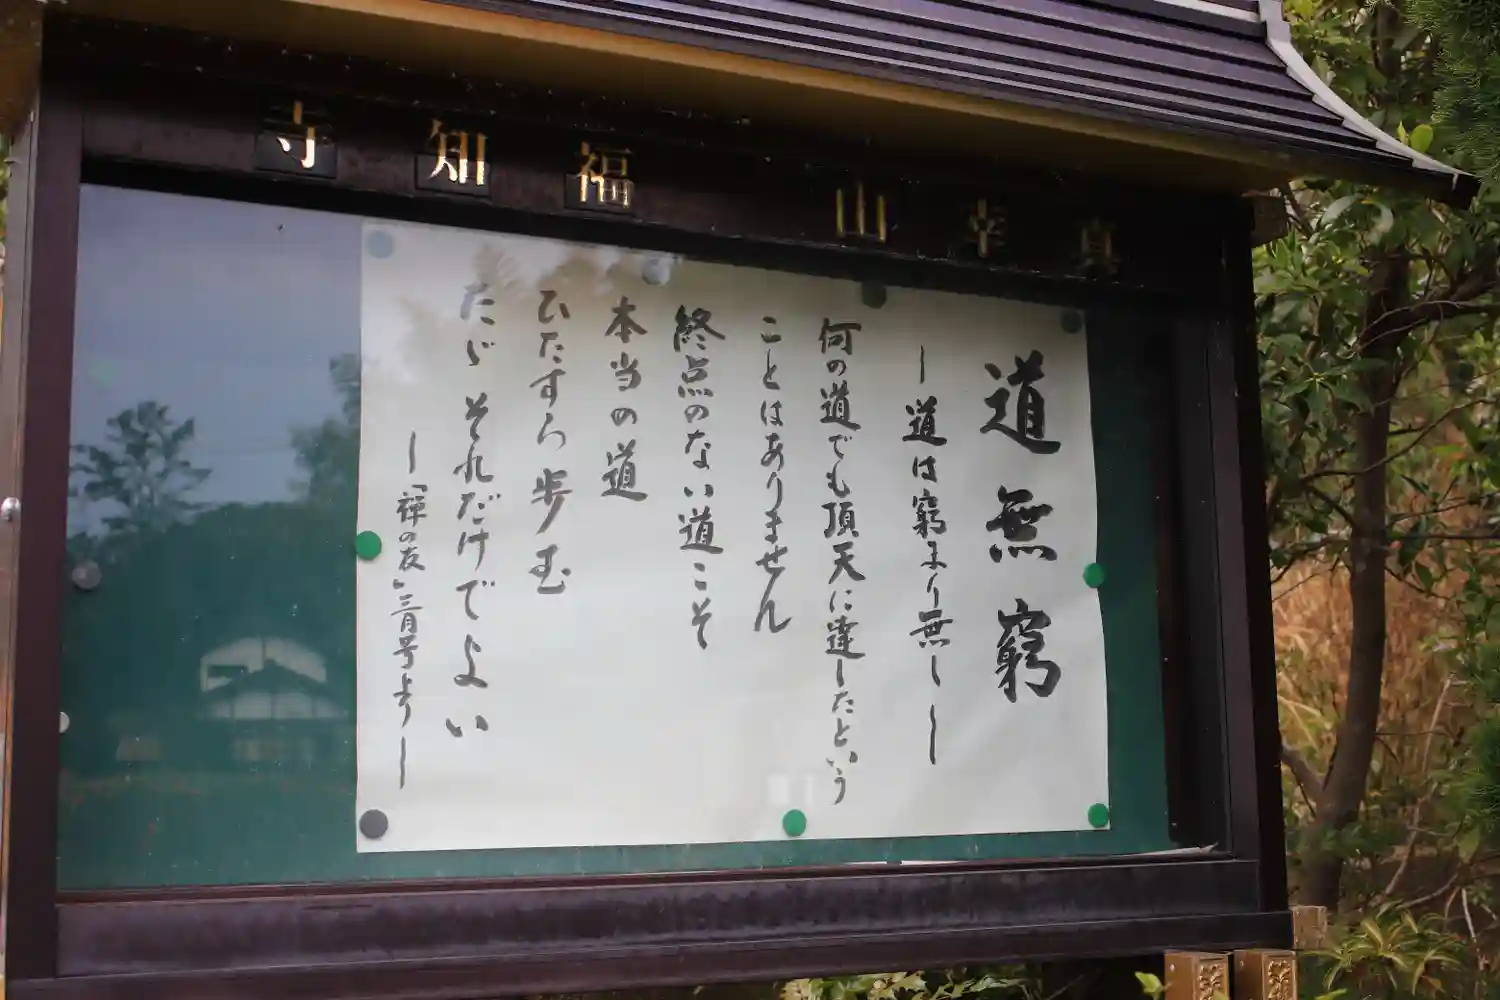 真幸山 福知寺
道無窮
―道は窮まり無し―
何の道でも頂天に達したという
ことはありません
終点のない道こそ
本当の道
ひたすら歩む
たゞそれだけでよい
―「禅の友」三月号より―